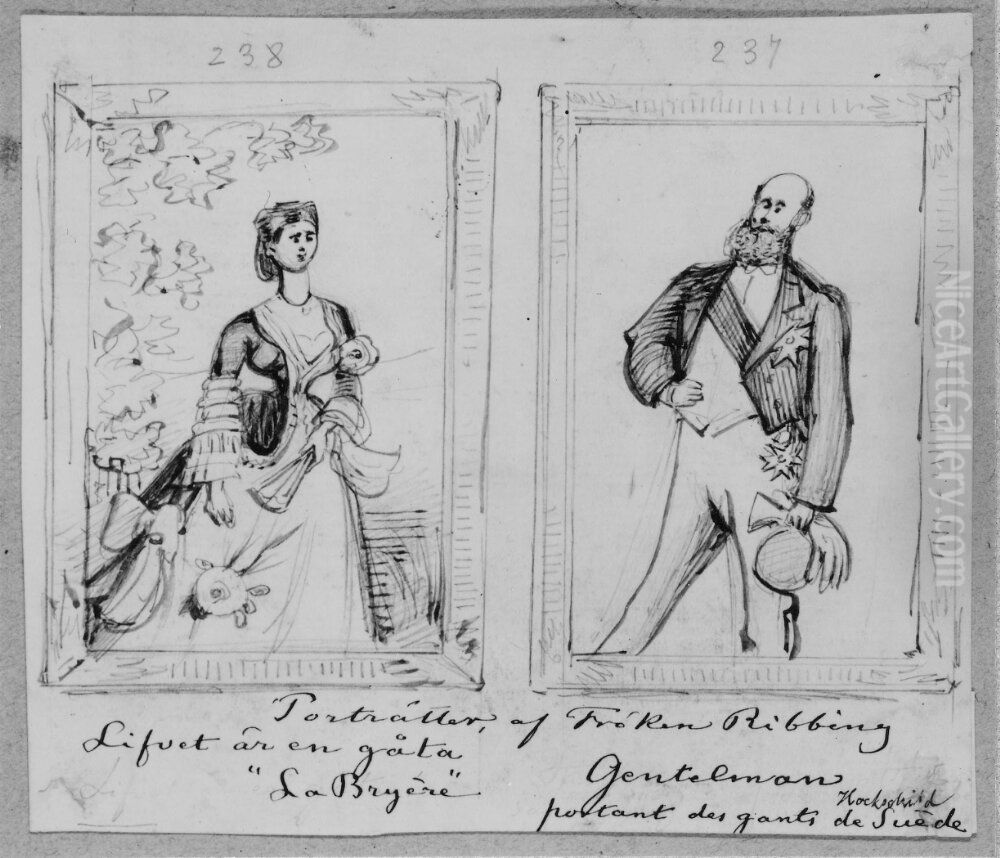 238
237
Porträtter, af Fröken Ribbing
Lifvet är en gåta
"La Bryère"
Gentelman
Hockschild
portant des gants de Suède
NiceArtGallery.com